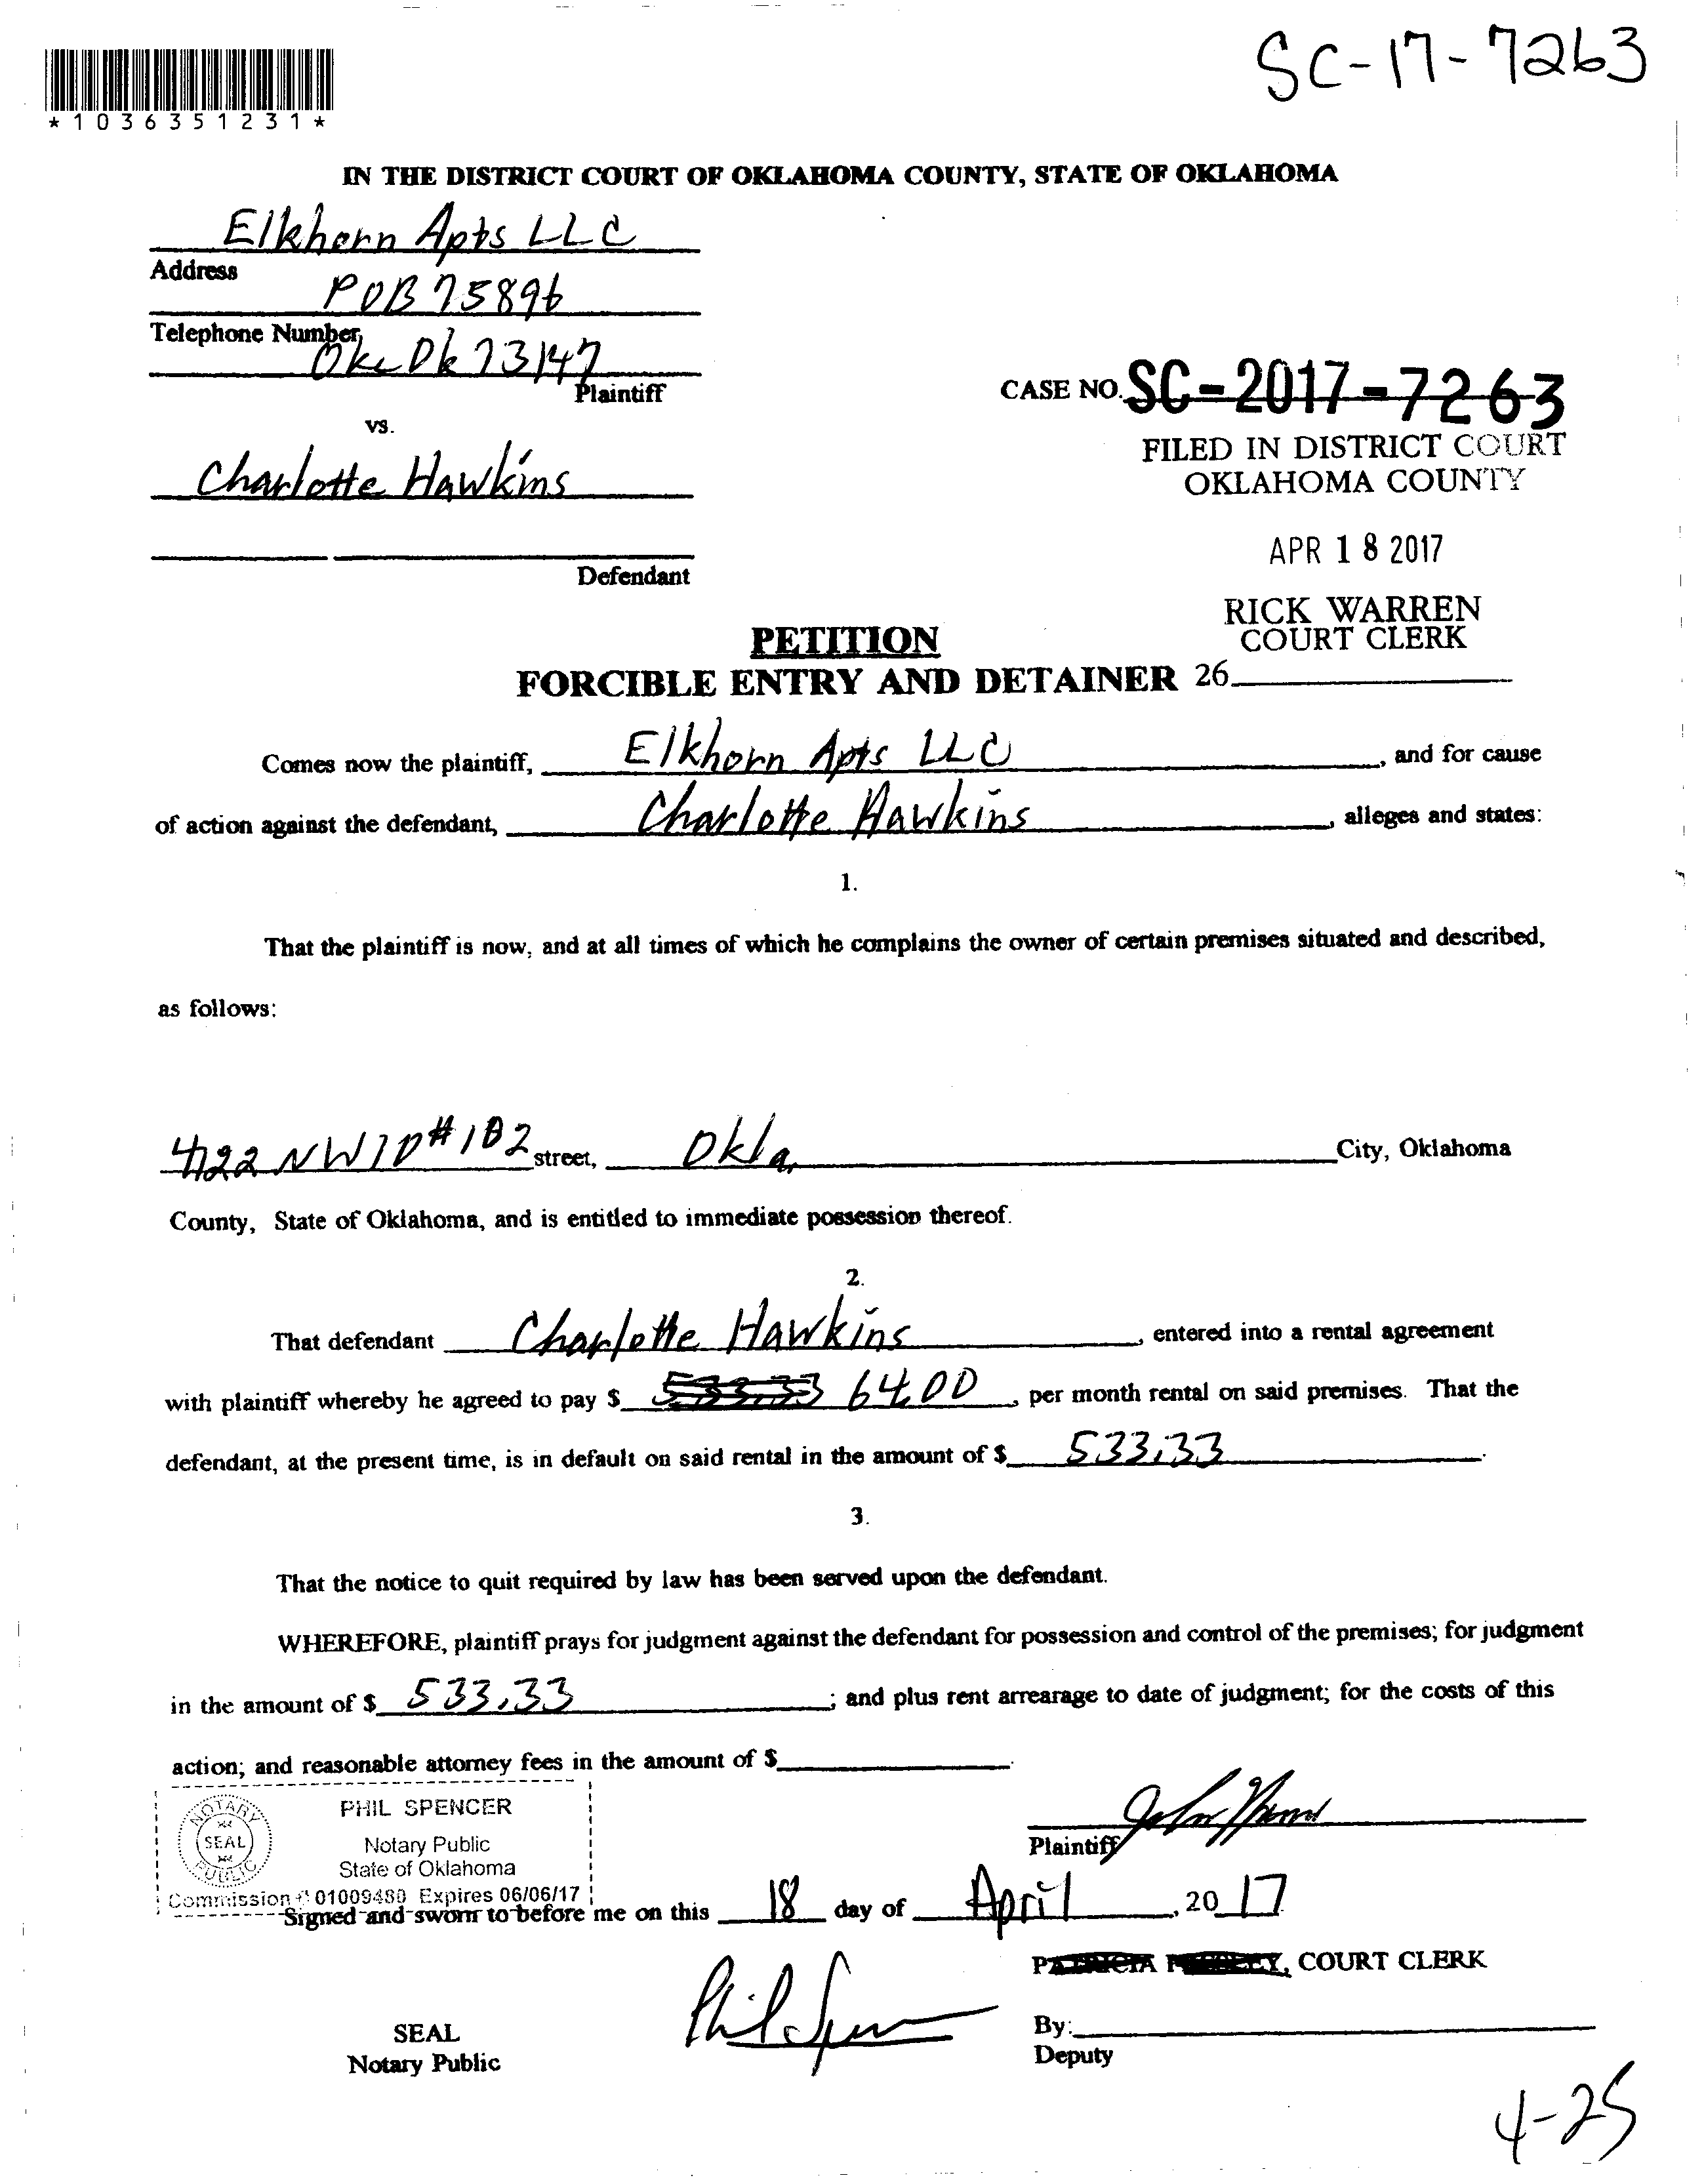 SC-17-7263
*1036351231*
IN THE DISTRICT COURT OF OKLAHOMA COUNTY, STATE OF OKLAHOMA
Elkhorn Apts LLC
Address
POB 75896
Telephone Number
Okc Ok 73147
Plaintiff
vs.
CASE NO. SC-2017-7263
FILED IN DISTRICT COURT
OKLAHOMA COUNTY
Charlotte Hawkins
APR 18 2017
Defendant
RICK WARREN
COURT CLERK
PETITION
FORCIBLE ENTRY AND DETAINER 26
Comes now the plaintiff, Elkhorn Apts LLC, and for cause
of action against the defendant, Charlotte Hawkins, alleges and states:
1.
That the plaintiff is now, and at all times of which he complains the owner of certain premises situated and described,
as follows:
4122 NW 10 #102 street, Okla. City, Oklahoma
County, State of Oklahoma, and is entitled to immediate possession thereof.
2.
That defendant Charlotte Hawkins, entered into a rental agreement
with plaintiff whereby he agreed to pay $ 533.33 64.00, per month rental on said premises. That the
defendant, at the present time, is in default on said rental in the amount of $ 533.33.
3.
That the notice to quit required by law has been served upon the defendant.
WHEREFORE, plaintiff prays for judgment against the defendant for possession and control of the premises; for judgment
in the amount of $ 533.33; and plus rent arrearage to date of judgment; for the costs of this
action; and reasonable attorney fees in the amount of $.
NOTARY PUBLIC SEAL
PHIL SPENCER
Notary Public
State of Oklahoma
Commission # 01009480 Expires 06/06/17
Plaintiff
Signed and sworn to before me on this 18 day of April, 2017
COURT CLERK
Phil Spencer
SEAL
Notary Public
By:
Deputy
4-25